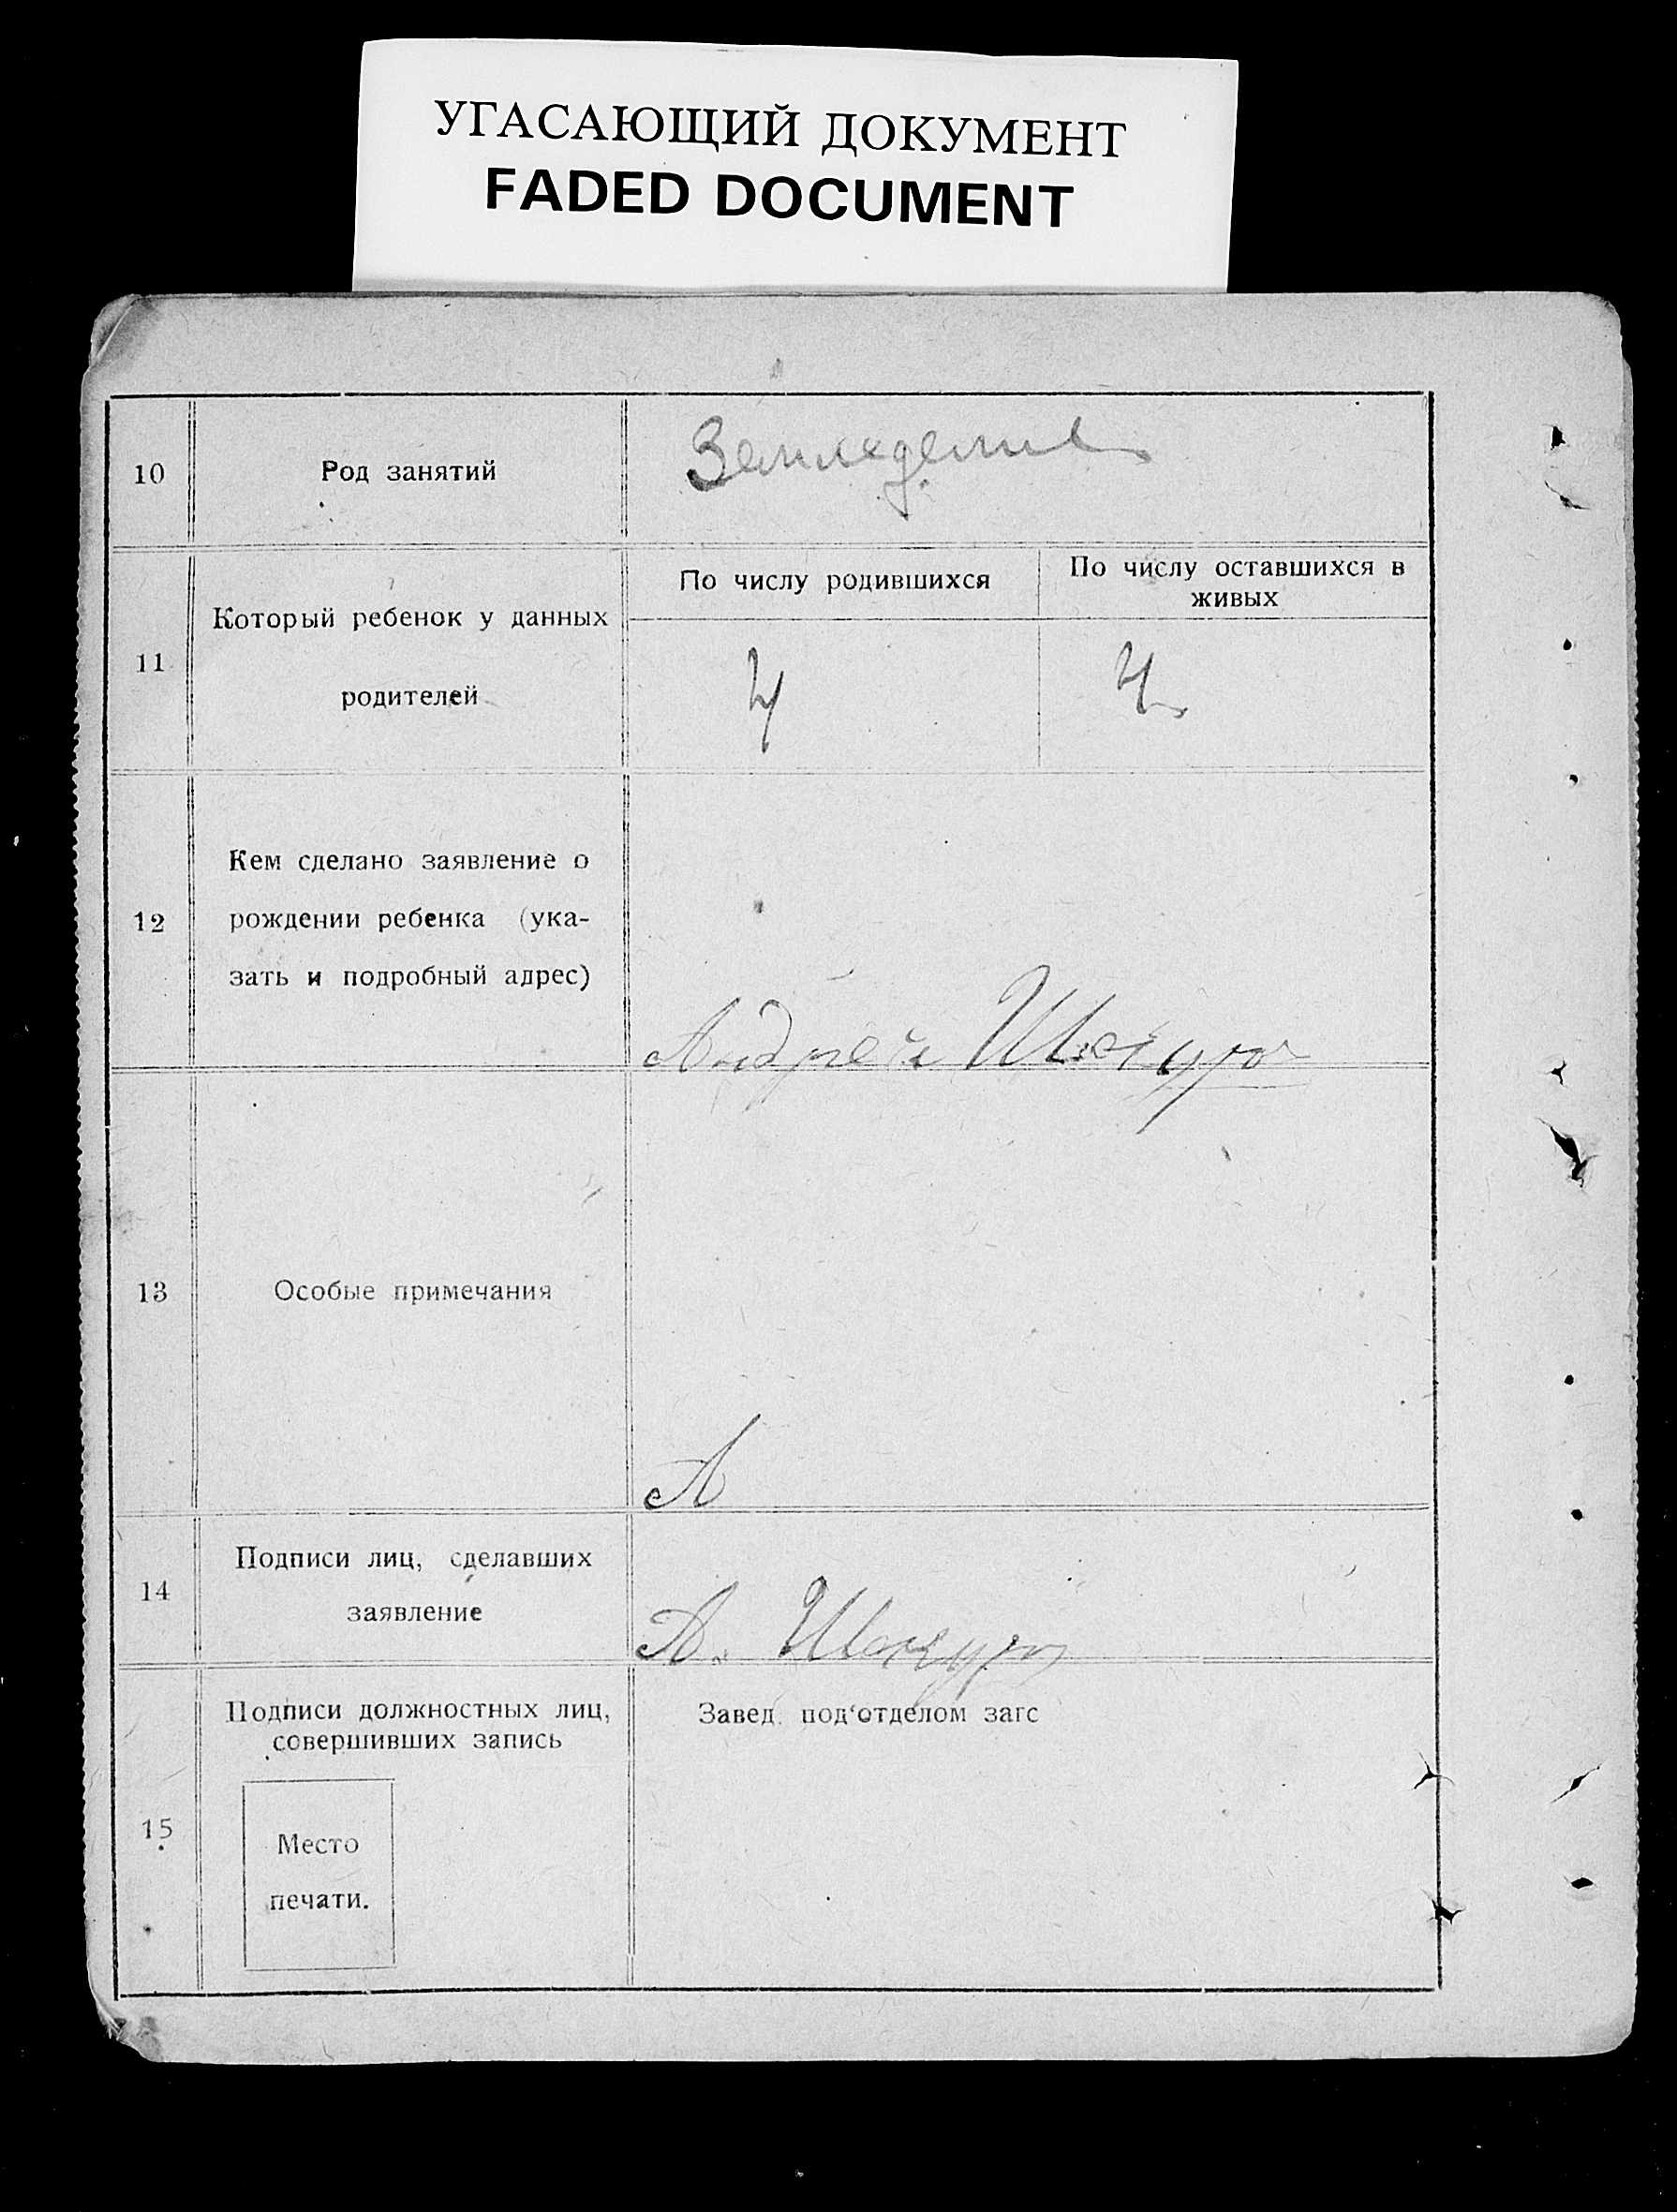 УГАСАЮЩИЙ ДОКУМЕНТ
FADED DOCUMENT
10
Род занятий
Земледелие
11
Который ребенок у данных
родителей
По числу родившихся
По числу оставшихся в
живых
4
4
12
Кем сделано заявление о
рождении ребенка (ука-
зать и подробный адрес)
Андрей
13
Особые примечания
А
14
Подписи лиц, сделавших
заявление
А.
15
Подписи должностных лиц,
совершивших запись
Место
печати.
Завед. под'отделом загс